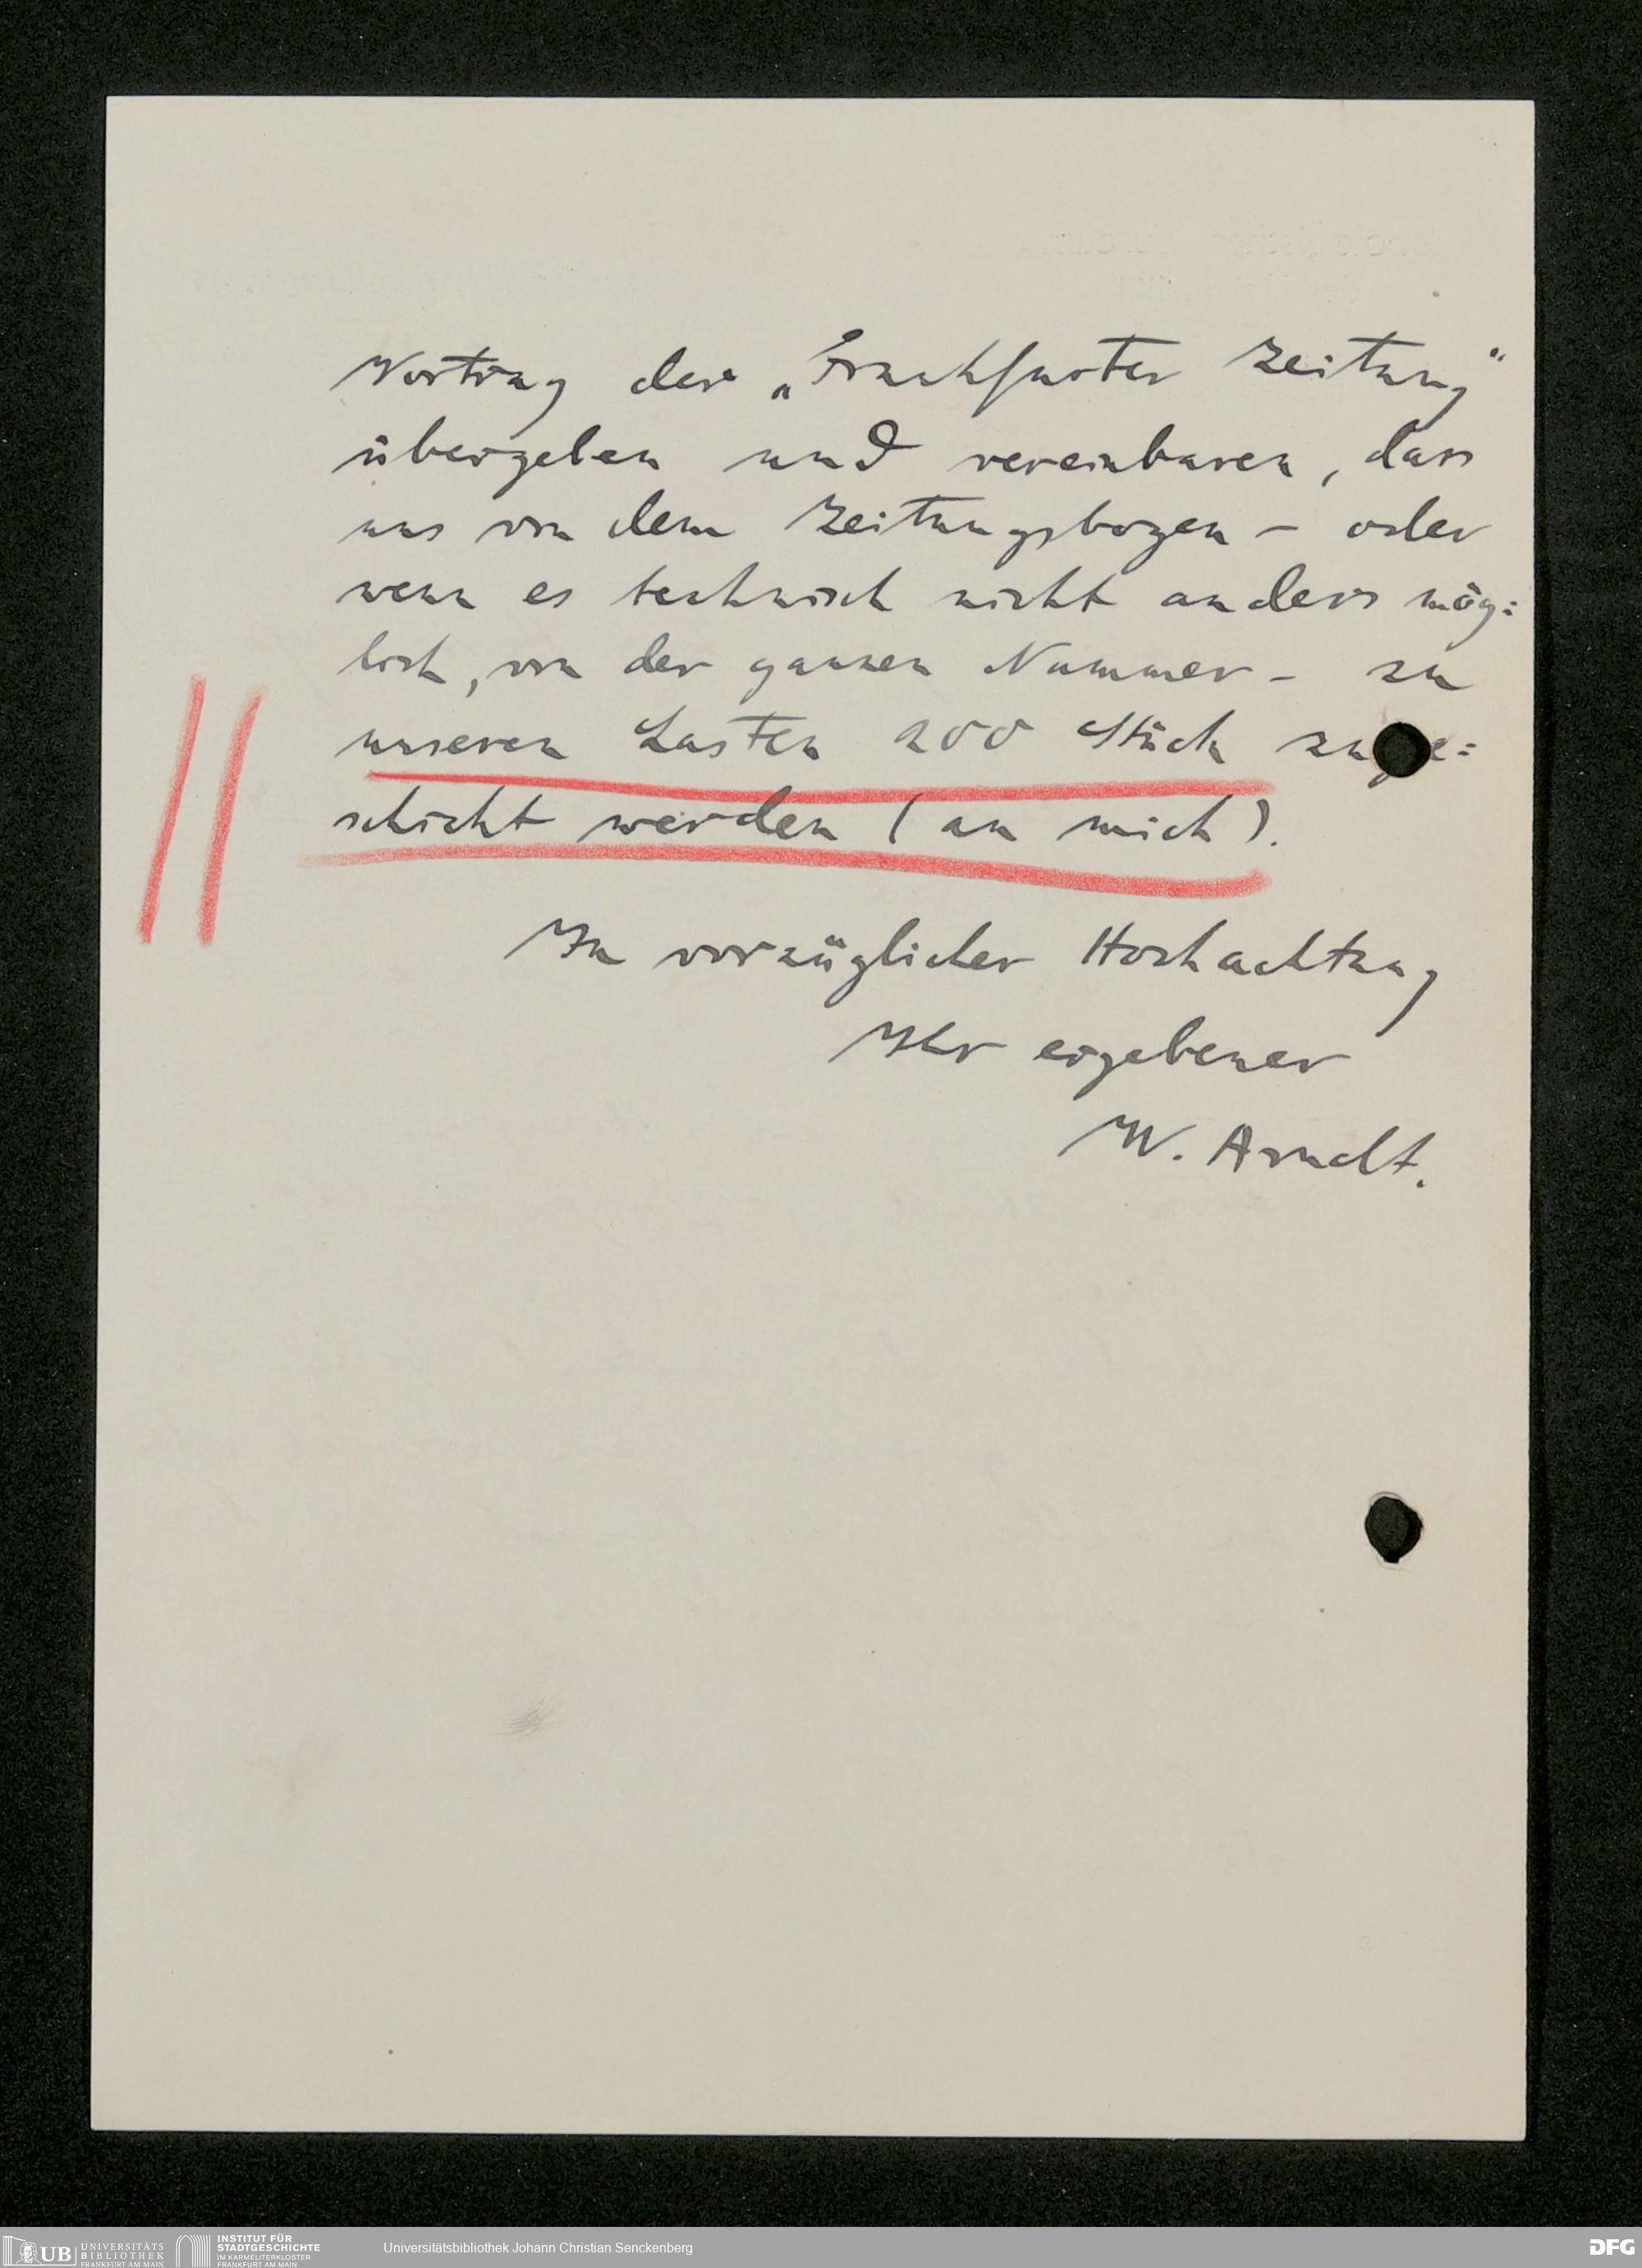 Vortrag der „Frankfurter Zeitung"
übergeben und vereinbaren, dass
uns von dem Zeitungsbogen – oder
wenn es technisch nicht anders mög:
lich, von der ganzen Nummer – zu
unseren Lasten 200 Stück zuge:
schickt werden (an mich).
In vorzüglicher Hochachtung
Ihr ergebener
W. Arndt.
UB UNIVERSITÄTS
BIBLIOTHEK
FRANKFURT AM MAIN
INSTITUT FÜR
STADTGESCHICHTE
IM KARMELITERKLOSTER
FRANKFURT AM MAIN
Universitätsbibliothek Johann Christian Senckenberg
DFG